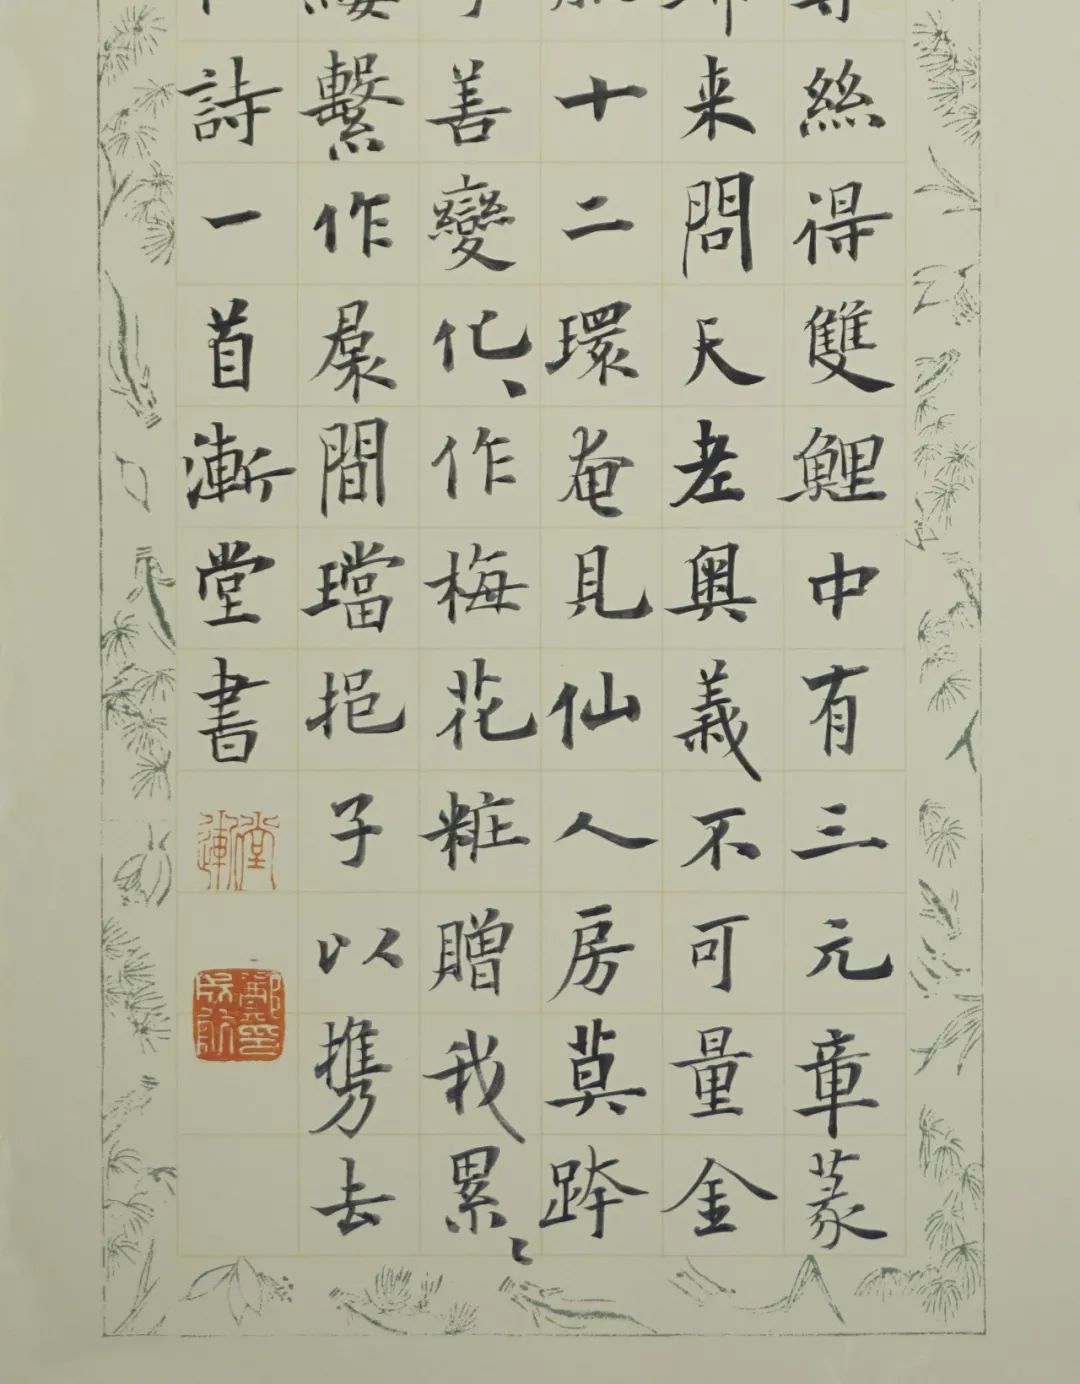 絲得雙鯉中有三元章篆
来問天老奥義不可量金
十二環奄見仙人房莫跨
善變化、作作梅花粧贈我累〻
繫作裙間璫挹子以携去
詩一首漸堂書